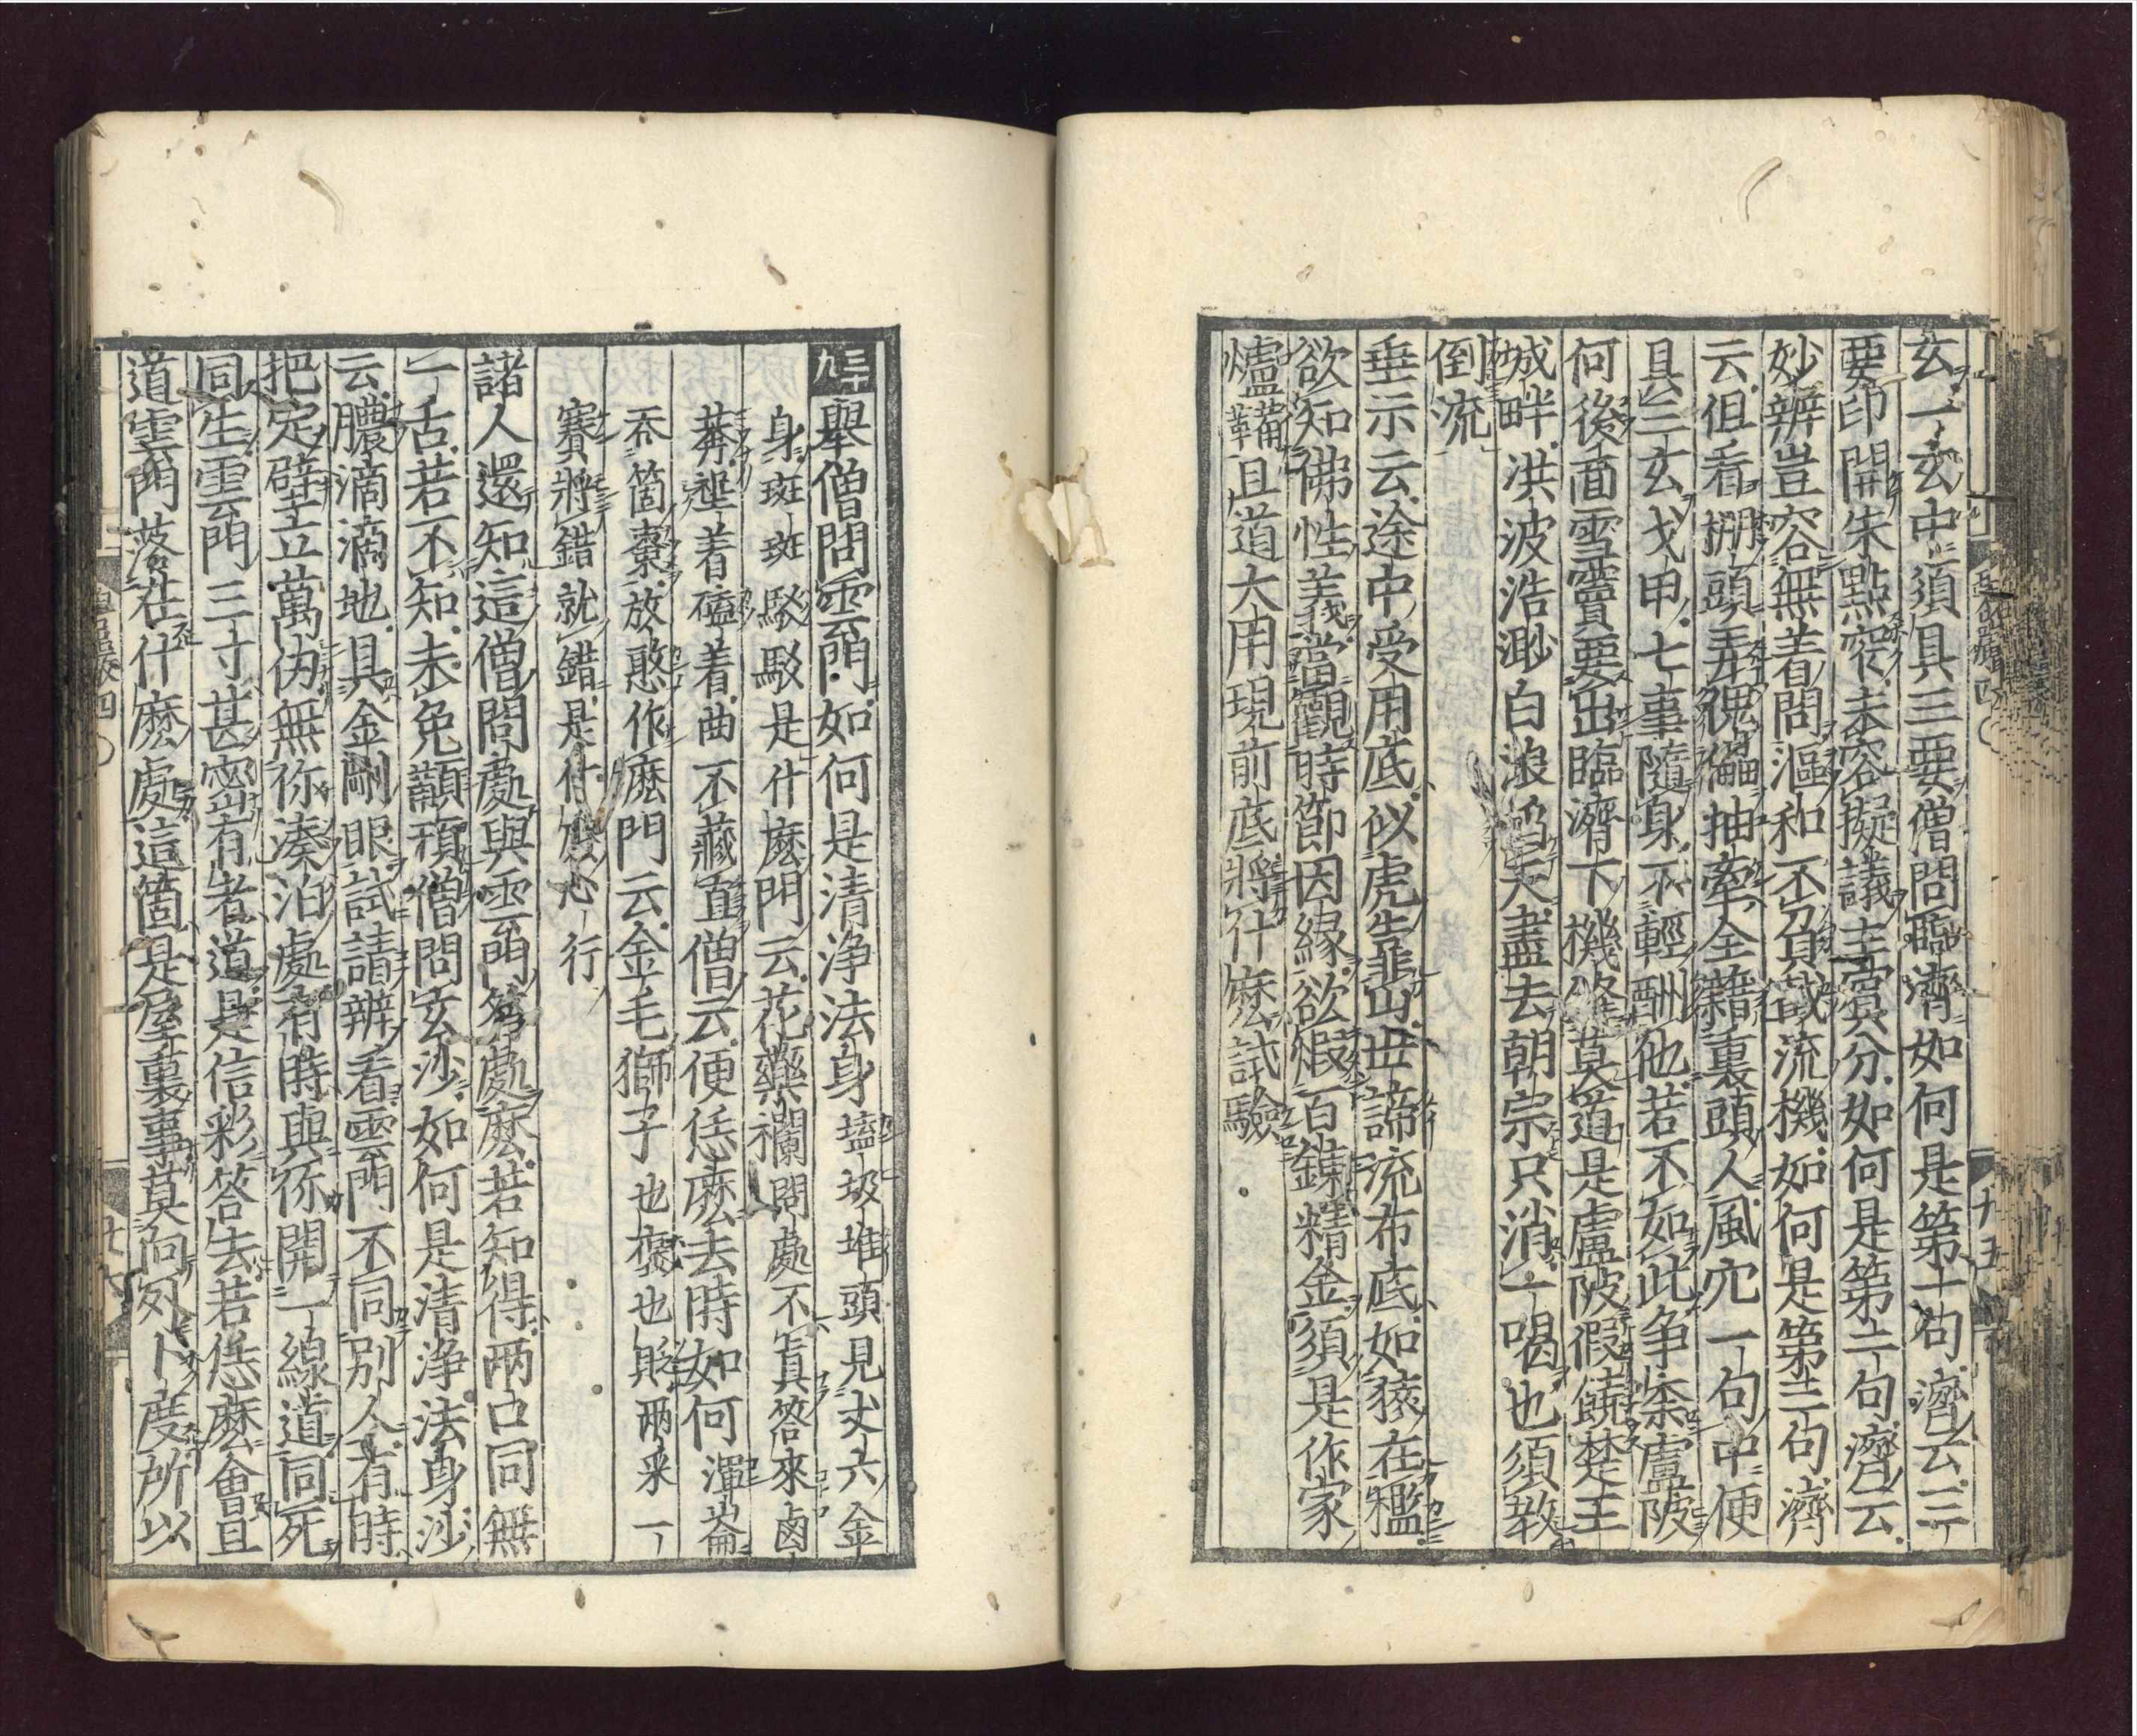 玄一玄中須具三要僧問臨濟如何是第一句濟云三
要印開朱點窄未容擬議主賓分如何是第二句濟云
妙辨豈容無著問漚和不負截流機如何是第三句濟
云但看棚頭弄傀儡抽牽全籍裏頭人風穴一句中便
具三玄戈甲七事隨身不輕酬他若不如此爭奈盧陂
何後面雪竇要出臨濟下機鋒莫道是盧陂假饒楚王
城畔洪波浩渺白浪滔天盡去朝宗只消一喝也須教
倒流
垂示云途中受用底似虎靠山世諦流布底如猿在檻
欲知佛性義當觀時節因緣欲煆百鍊精金須是作家
爐鞴且道大用現前底將什麼試驗
三十九
舉僧問雲門如何是清淨法身 壒圾堆頭見丈六金
身斑斑駁駁是什麼 門云花藥欄 問處不真答來鹵
莽 着磕着曲不藏直 僧云便恁麼去時如何 渾崙
吞箇棗放憨作麼 門云金毛獅子 也褒也貶兩采一
賽將錯就錯是什麼心行
諸人還知這僧問處與雲門答處麼若知得兩口同無
一舌若不知未免顢頇僧問玄沙如何是清淨法身沙
云膿滴滴地具金剛眼試請辨看雲門不同別人有時
把定壁立萬仞無你湊泊處有時與你開一線道同死
同生雲門三寸甚密有者道是信彩答去若恁麼會且
道雲門落在什麼處這箇是屋裏事莫向外卜度所以